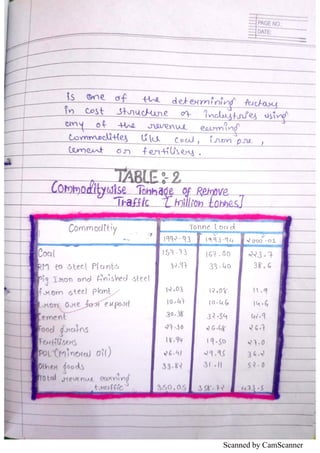 PAGE NO.
DATE:
is one of the determining factors
in cost structure of industries using
any of the revenue earning
commodities like coal, iron ore,
cement or fertilisers.
TABLE: 2
Commoditywise Tonnage of Remove
Traffic [million tonnes]
Commoditiy Tonne Load
1992-93 1993-94 2001-02
Coal 167.73 167.00 223.7
RM to Steel Plants 32.97 33.40 38.6
Pig Iron and finished steel
from steel plant 12.03 12.08 11.9
Iron ore for export 10.47 10.46 14.6
Cement 30.38 32.54 42.9
Food grains 27.30 26.68 26.7
Fertilisers 18.94 19.50 27.0
POL (Mineral oil) 26.41 29.95 36.2
Other goods 33.82 31.11 52.0
Total revenue earning
traffic 350.05 358.72 473.5
Scanned by CamScanner